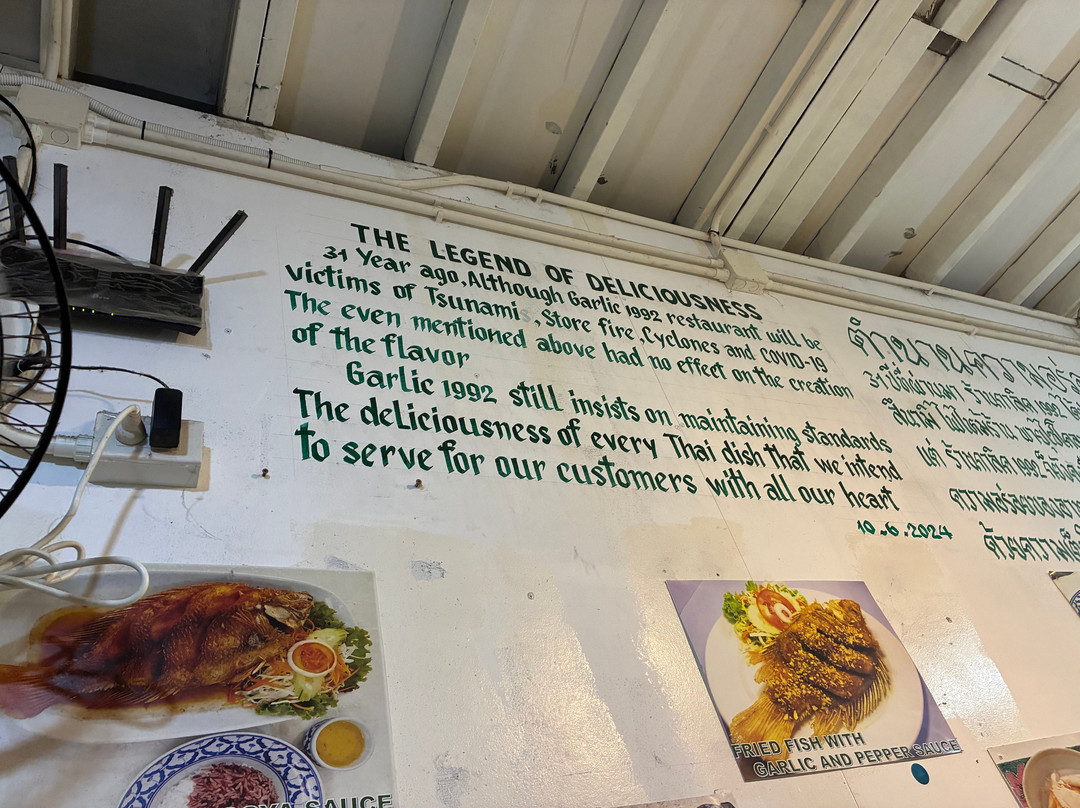 THE LEGEND OF DELICIOUSNESS
31 Year ago,Although Garlic 1992 restaurant will be
victims of Tsunami ,Store fire,Cyclones and COVID-19
The even mentioned above had no effect on the creation
of the flavor
Garlic 1992 still insists on maintaining standards
The deliciousness of every Thai dish that we intend
to serve for our customers with all our heart
10.6.2024
ตำนานความ
31 ปีที่ผ่านมา ร้านกาลิค 1992
สึนามิ ไฟไหม้ร้าน
แต่ ร้านกาลิค 1992
ความอร่อยของ
ด้วยความ
FRIED FISH WITH
GARLIC AND PEPPER SAUCE
SAUCE